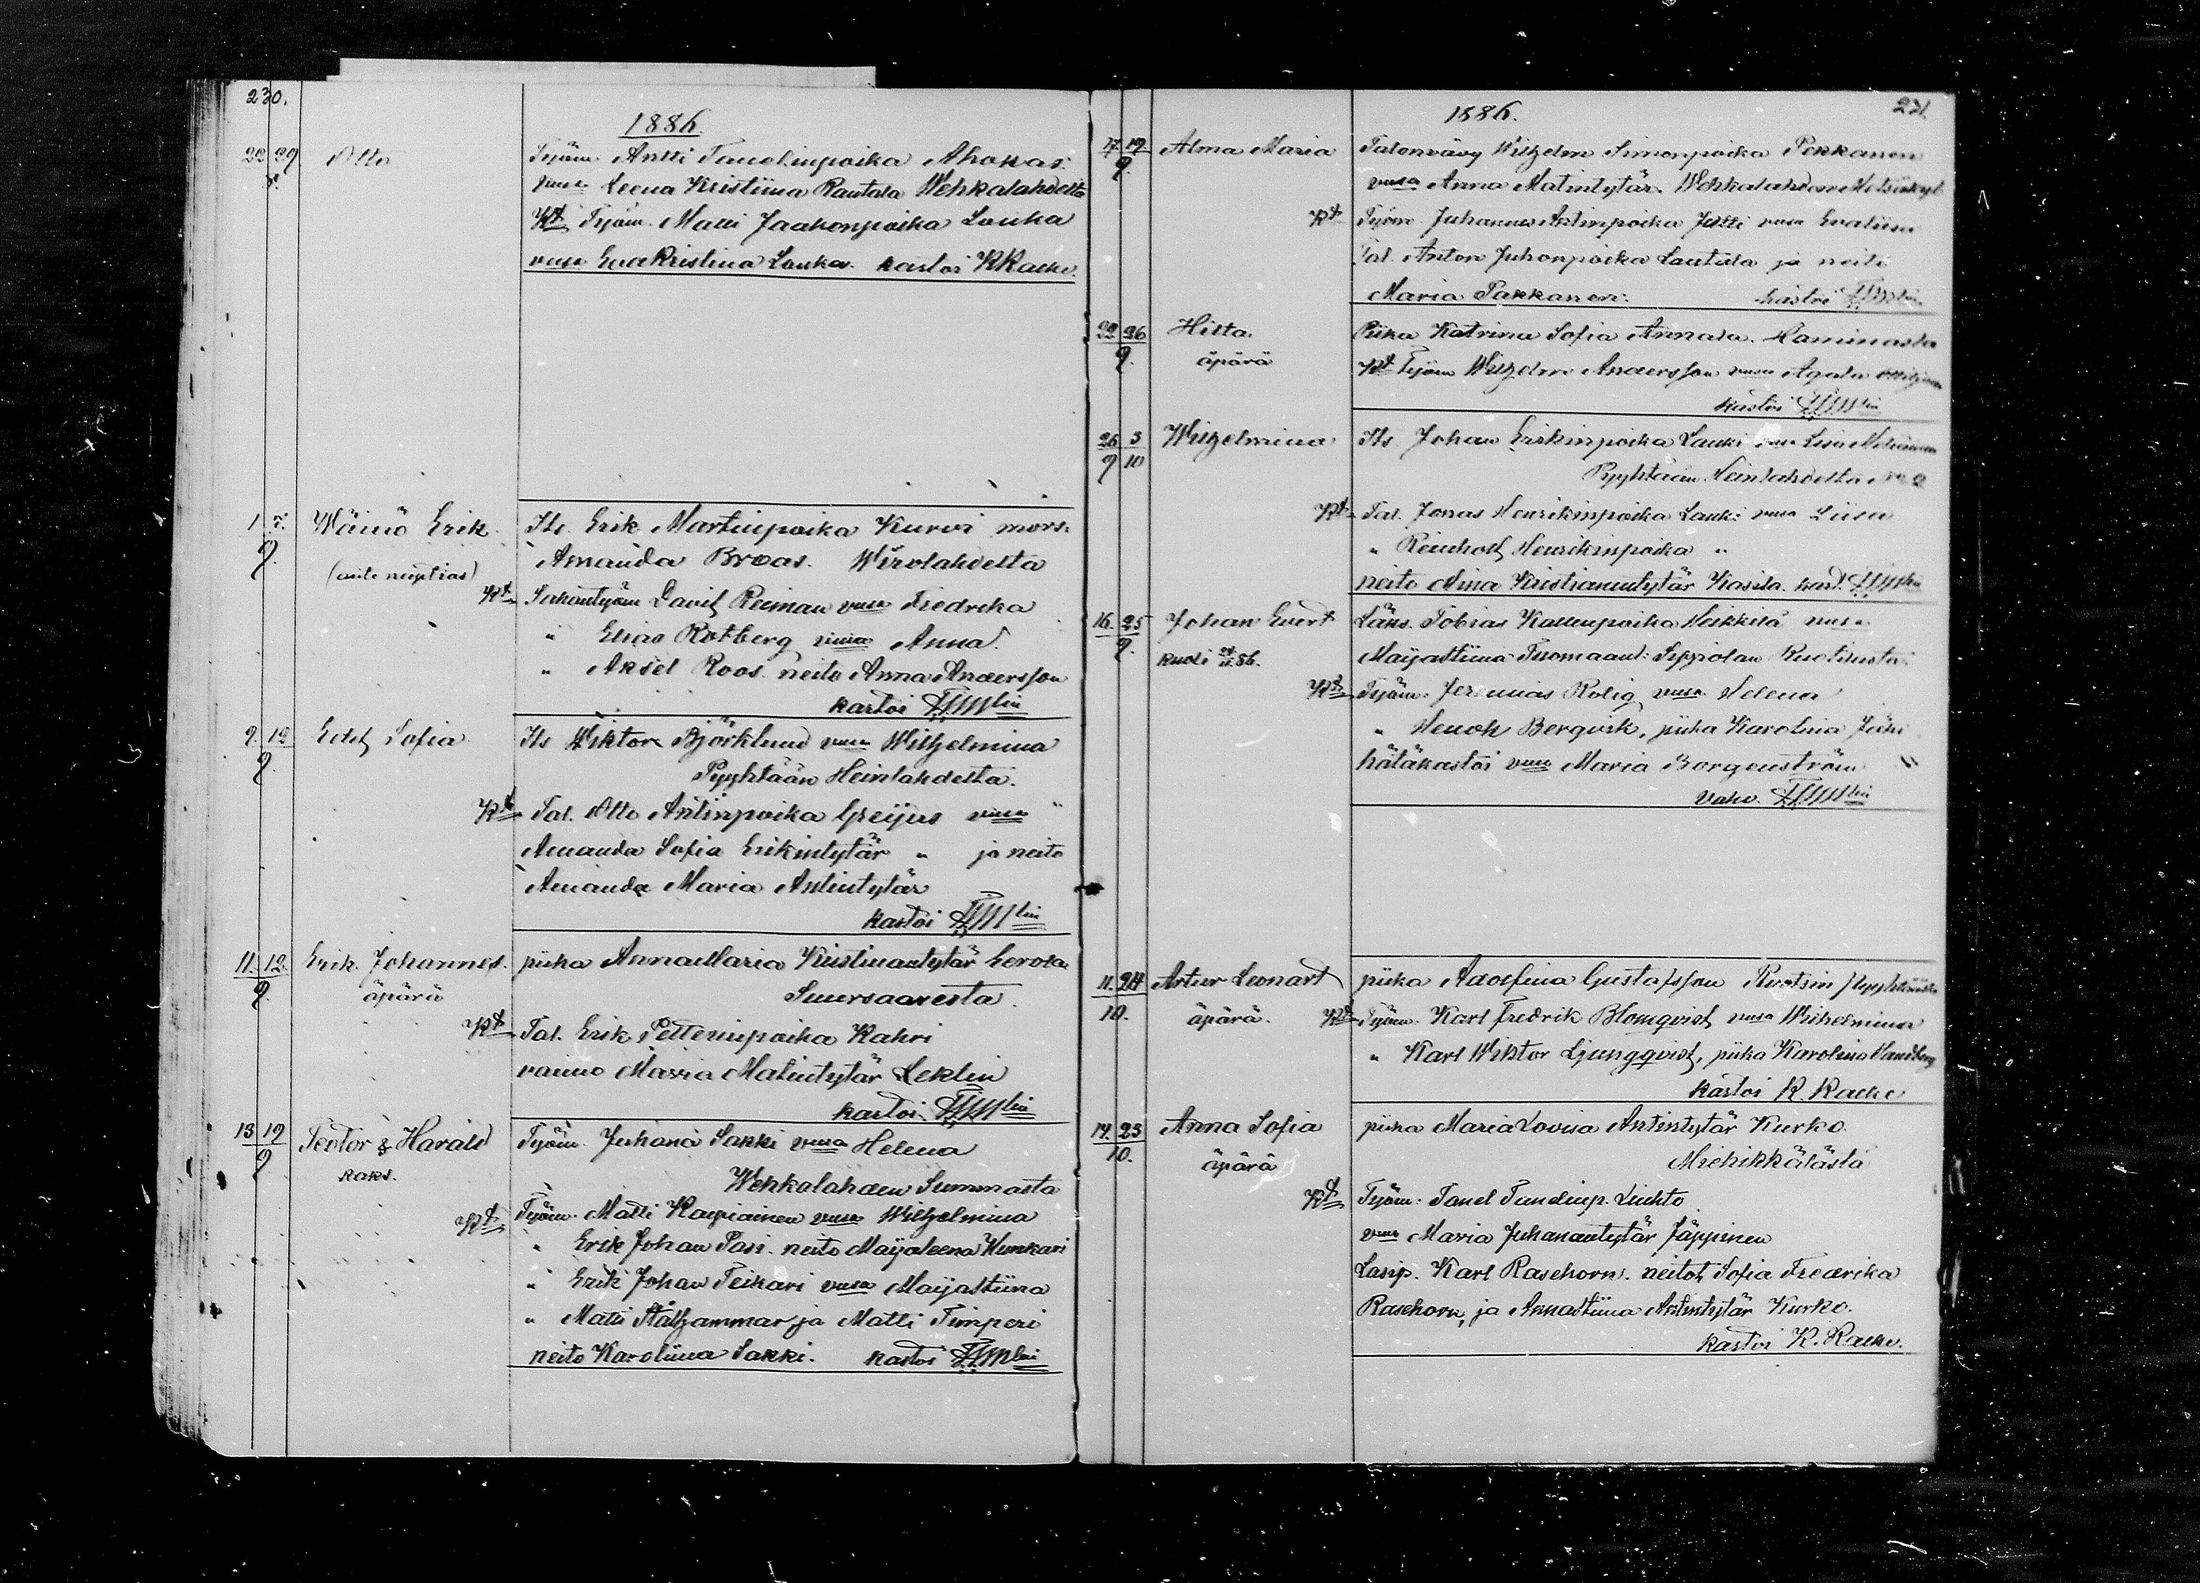 230.
1886.
22 29 Otto Työm. Antti Taavelinpoika Ahokas.
8. vmsa Leena Kristiina Rautala Wehkalahdelta
Kt Työm. Matti Jaakonpoika Lauka
vmsa Eva Kristina Lauka. kastoi K Racke.
1 5. Wäinö Erik Its. Erik Martinpoika Kurvi mors.
9. Amanda Broas. Wirolahdelta
(ante nuptias)
Kt Sahantyöm David Reiman vmsa Fredrika
" Elias Rotberg vmsa Anna.
" Aksel Roos. neito Anna Andersson
kastoi
9. 12 Edit Sofia Its Wiktor Björklund vmsa Wilhelmina
9. Pyyhtään Heinlahdelta.
Kt Tal. Otto Antinpoika Greijus vmsa
Amanda Sofia Erikintytär " ja neito
Amanda Maria Antintytär
kastoi
11. 12. Erik Johannes. piika Anna Maria Kristiantytär
9. äpärä Suursaaresta.
Kt Tal. Erik Petterinpoika Kahri
vaimo Maria Matintytär Leklin
kastoi
13 19 Teotor & Harald Työm. Juhana Sakki vmsa Helena
9 kaks. Wehkalahden Summasta
Kt Työm. Matti Kaupiainen vmsa Wilhelmina
" Erik Johan Pasi. neito Maijaleena Kunkari
" Erik Johan Teikari vmsa Maijastiina
" Matti Stålhammar ja Matti Timperi
neito Karoliina Sakki. kastoi
231.
1886.
17 19 Alma Maria Talonvävy Wilhelm Simonpoika Pekkanen
9. vmsa Anna Matintytär. Wehkalahden
Kt Työm Juhannes Antinpoika vmsa Evaliisa
Tal. Anton Juhonpoika Lautala ja neiti
Maria Pakkanen. kastoi
22 26 Hilta Piika Katrina Sofia Annala. Haminasta
9. äpärä Kt Työm Wilhelm Andersson vmsa Agata
kastoi
26 3 Wilhelmina Its Johan Erikinpoika Lauki vmsa
9 10 Pyyhtään Heinlahdelta
Kt Tal. Jonas Henrikinpoika Lauki vmsa Liisa
" Reinholt Henrikinpoika "
neito Mina Kristianintytär Kasila. kast.
16. 25 Johan Evert Läks. Tobias Kallenpoika Heikkilä vmsa
9. kuoli Maijastiina Tuomaant. Sippolan
Kt Työm. Jeremias Rolig vmsa Helena
" Henok Bergvik, piika Karolina
hätäkastoi vmsa Maria Borgenström
vahv.
11. 24 Artur Leonart piika Adolfina Gustafsson Ruotsin Pyyhtäältä
10. äpärä. Kt Työm. Karl Fredrik Blomqvist vmsa Wilhelmina
" Karl Wiktor Ljungqvist, piika Karolina Sandberg
kastoi K. Racke
14. 23 Anna Sofia piika Maria Lovisa Antintytär Kurko.
10. äpärä Miehikkälästä
Kt Työm. Tanel Tanelinp. Liuhto
vmsa Maria Juhanantytär Jäppinen
Lasip. Karl Rasehorn. neitot Sofia Fredrika
Rasehorn, ja Annastiina Antintytär Kurko.
kastoi K. Racke.